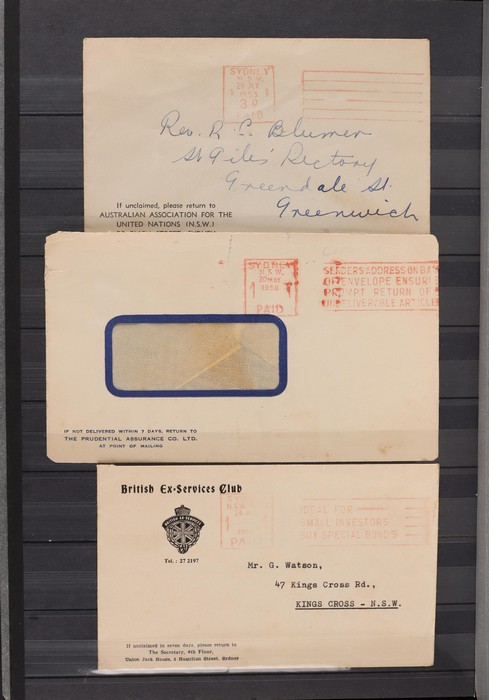 SYDNEY
N.S.W.
1953
3 D
PAID
Rev. R. C. Blumer
St Giles' Rectory
Greendale St.
Greenwich
If unclaimed, please return to
AUSTRALIAN ASSOCIATION FOR THE
UNITED NATIONS (N.S.W.)
SYDNEY
N.S.W.
1958
PAID
SENDERS ADDRESS ON BA
OF ENVELOPE ENSURE
PROMPT RETURN OF
UNDELIVERABLE ARTICLE
IF NOT DELIVERED WITHIN 7 DAYS, RETURN TO
THE PRUDENTIAL ASSURANCE CO. LTD.
AT POINT OF MAILING
British Ex-Services Club
BRITISH EX-SERVICES
Tel.: 27 2197
PAID
IDEAL FOR
SMALL INVESTORS
BUY SPECIAL BONDS
Mr. G. Watson,
47 Kings Cross Rd.,
KINGS CROSS - N.S.W.
If unclaimed in seven days, please return to
The Secretary, 4th Floor,
Union Jack House, 5 Hamilton Street, Sydney